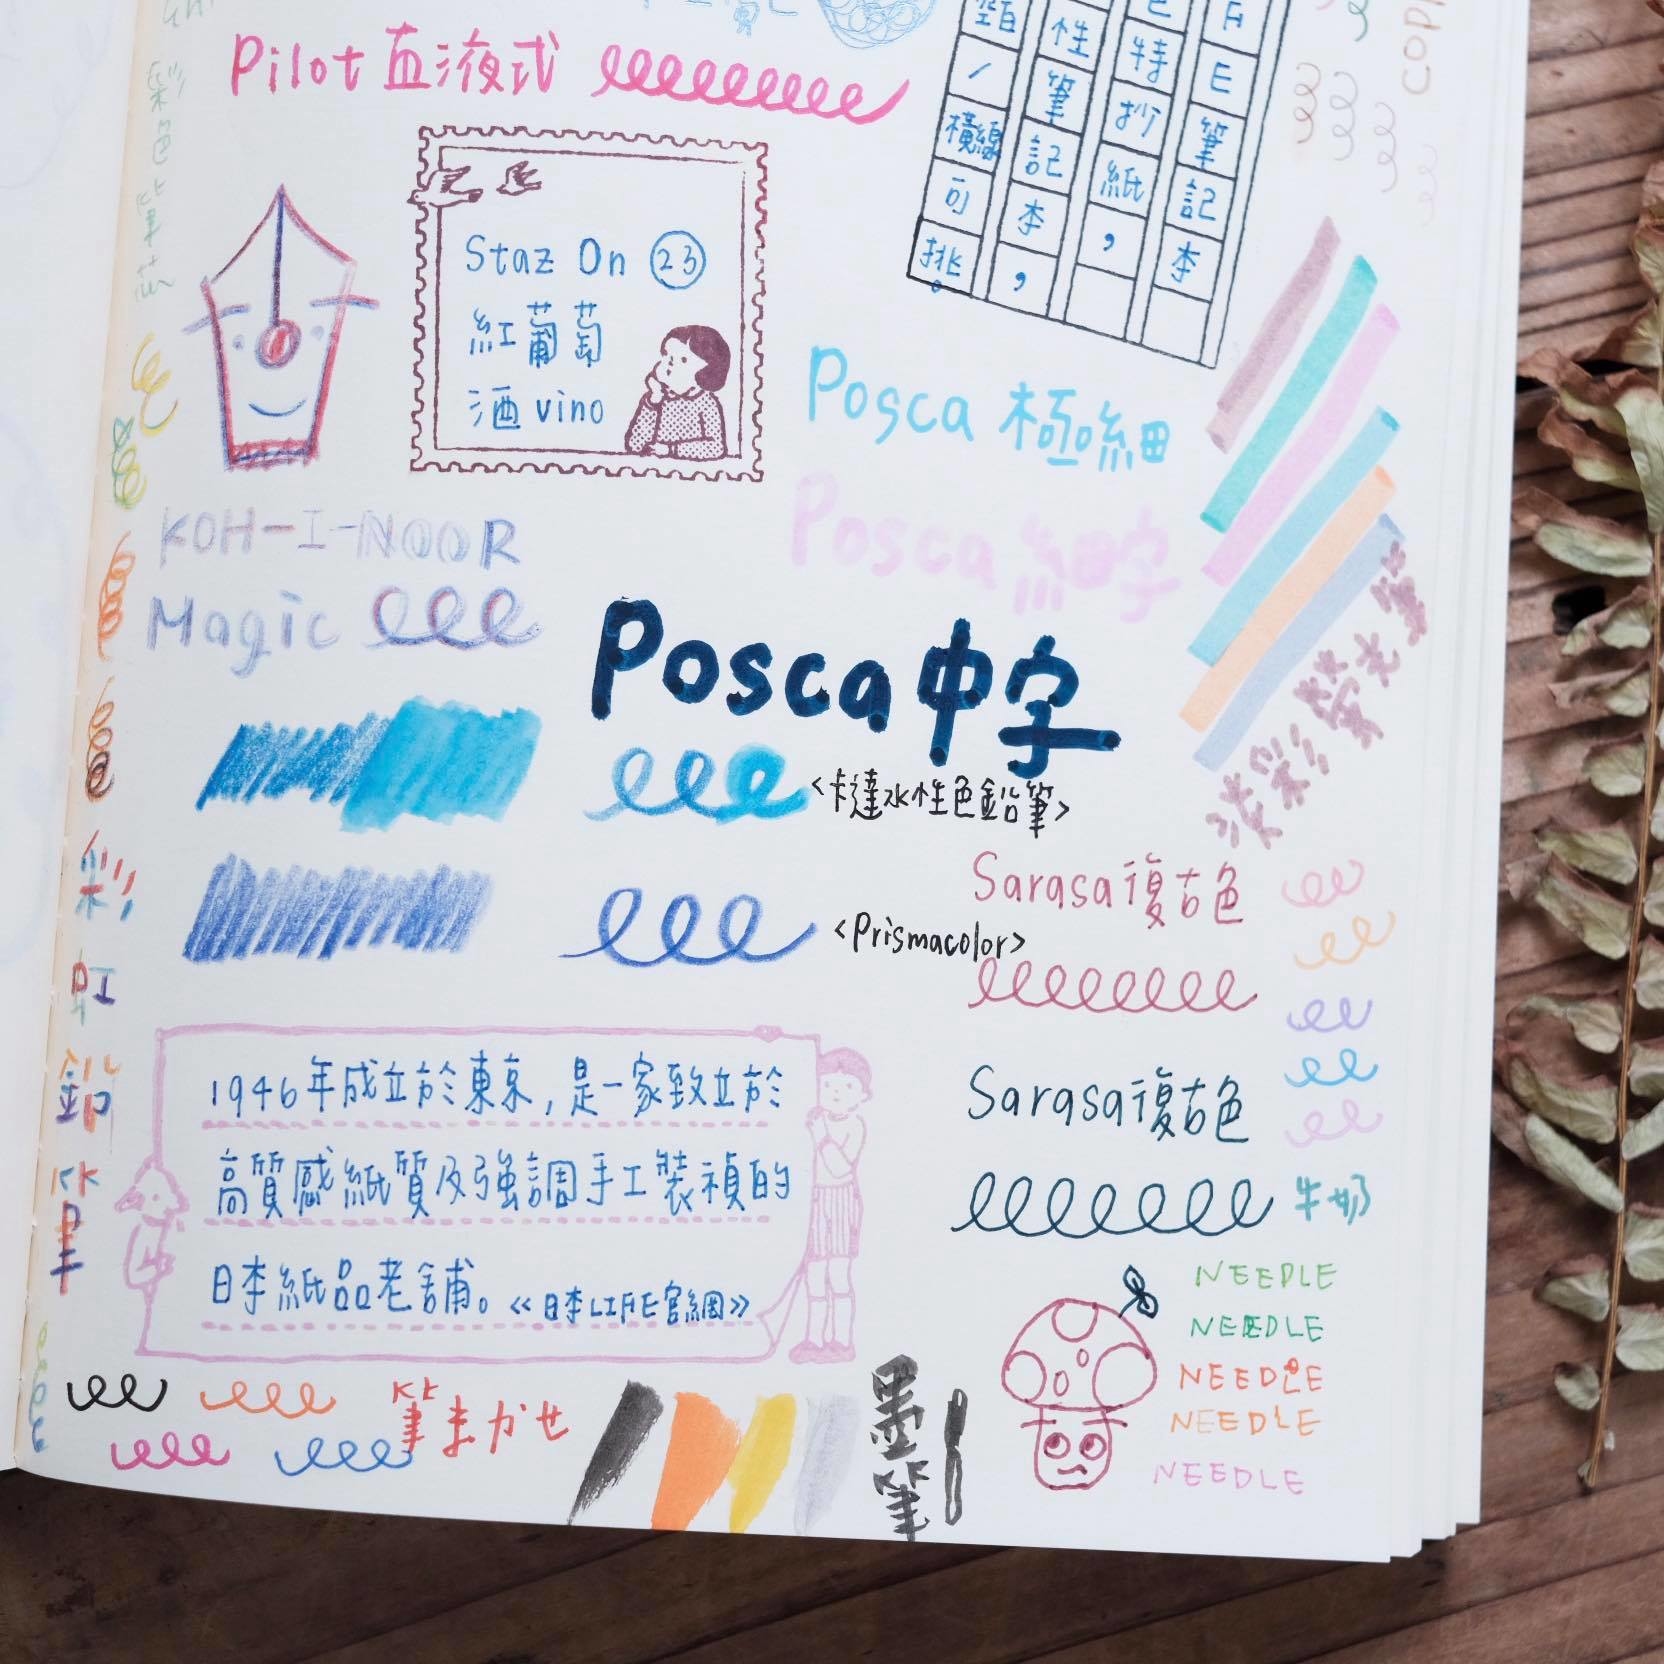 Pilot 直液式
Staz On 23
紅葡萄
酒 vino
E筆記本
特抄紙，
性筆記本，
/橫線可挑。
Posca 極細
Posca 細字
Posca 中字
KOH-I-NOOR
Magic
<卡達水性色鉛筆>
<Prismacolor>
淡彩螢光筆
Sarasa 復古色
Sarasa 復古色
牛奶
彩虹鉛筆
1946年成立於東京，是一家致立於
高質感紙質及強調手工裝禎的
日本紙品老舖。《日本LIFE官網》
筆まかせ
墨筆
NEEDLE
NEEDLE
NEEDLE
NEEDLE
NEEDLE